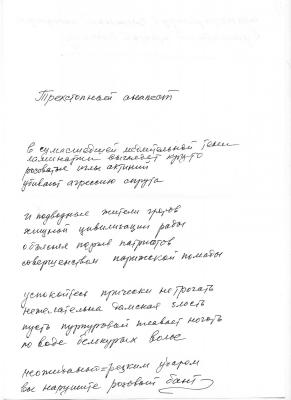 Трехстопный анапест
в сумасшедшей стоматологной тени
ламинарии выглядят круто
розоватые иглы актиний
убивают агрессию спрута
и подводные жители гротов
хищной цивилизации рабы
обаянья порыв патриотов
совершенством парижской помады
успокойтесь прически не трогать
нежелательна дамская злость
пусть пурпуровый плавает ноготь
по воде белокурых волос
неожиданно-резким ударом
вы нарушите розовый бант